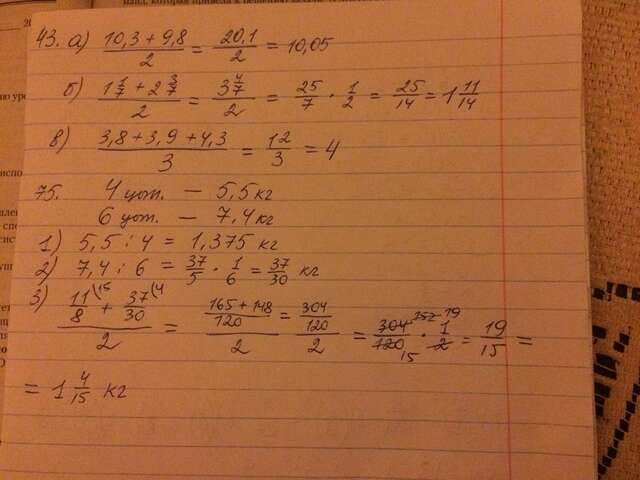 43. а) (10,3 + 9,8)/2 = 20,1/2 = 10,05
б) (1 1/7 + 2 3/7)/2 = (3 4/7)/2 = 25/7 · 1/2 = 25/14 = 1 11/14
в) (3,8 + 3,9 + 4,3)/3 = 12/3 = 4
75. 4 цот. — 5,5 кг
6 цот. — 7,4 кг
1) 5,5 : 4 = 1,375 кг
2) 7,4 : 6 = 37/5 · 1/6 = 37/30 кг
3) (11/8 (15 + 37/30 (4)/2 = ((165 + 148)/120)/2 = (304/120)/2 = 304/120 152 19 15 · 1/2 = 19/15 =
= 1 4/15 кг